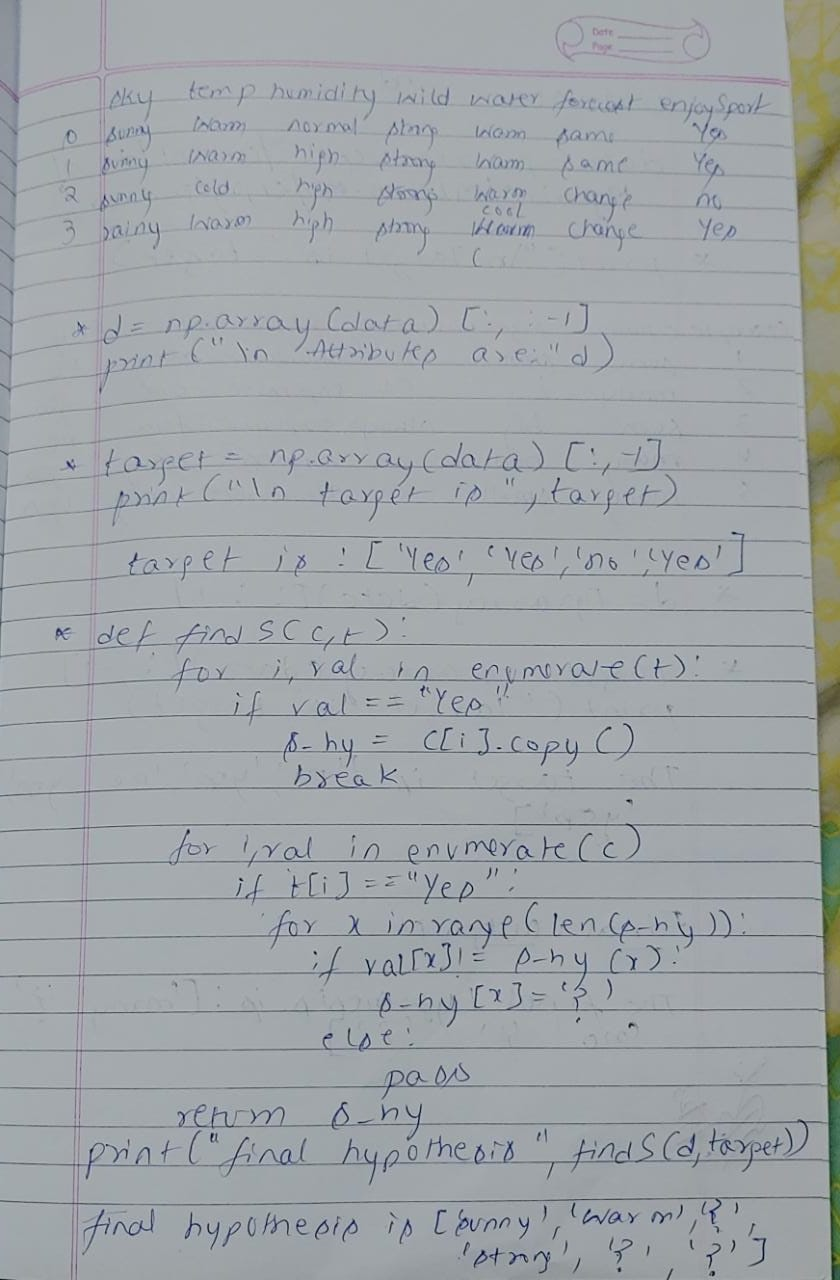 Date
Page
sky temp humidity wild water forecast enjoySport
0 sunny warm normal strong warm same Yes
1 sunny warm high strong warm same Yes
2 sunny cold high strong warm change no
cool
3 rainy warm high strong warm change Yes
(
* d = np.array (data) [:, : -1]
print ("\n Attributes are:" d)
* target = np.array (data) [:, -1]
print ("\n target is ", target)
target is : ['Yes', 'Yes', 'no', 'Yes']
* def find S(c,t):
for i, val in enumerate (t):
if val == "Yes"
s-hy = c[i].copy ()
break
for i, val in enumerate (c)
if t[i] == "Yes":
for x in range (len (s-hy)):
if val[x] != s-hy (x):
s-hy [x] = '?'
else:
pass
return s-hy
print ("final hypothesis", find S (d, target))
final hypothesis is ['sunny', 'warm', '?',
'strong', '?', '?']